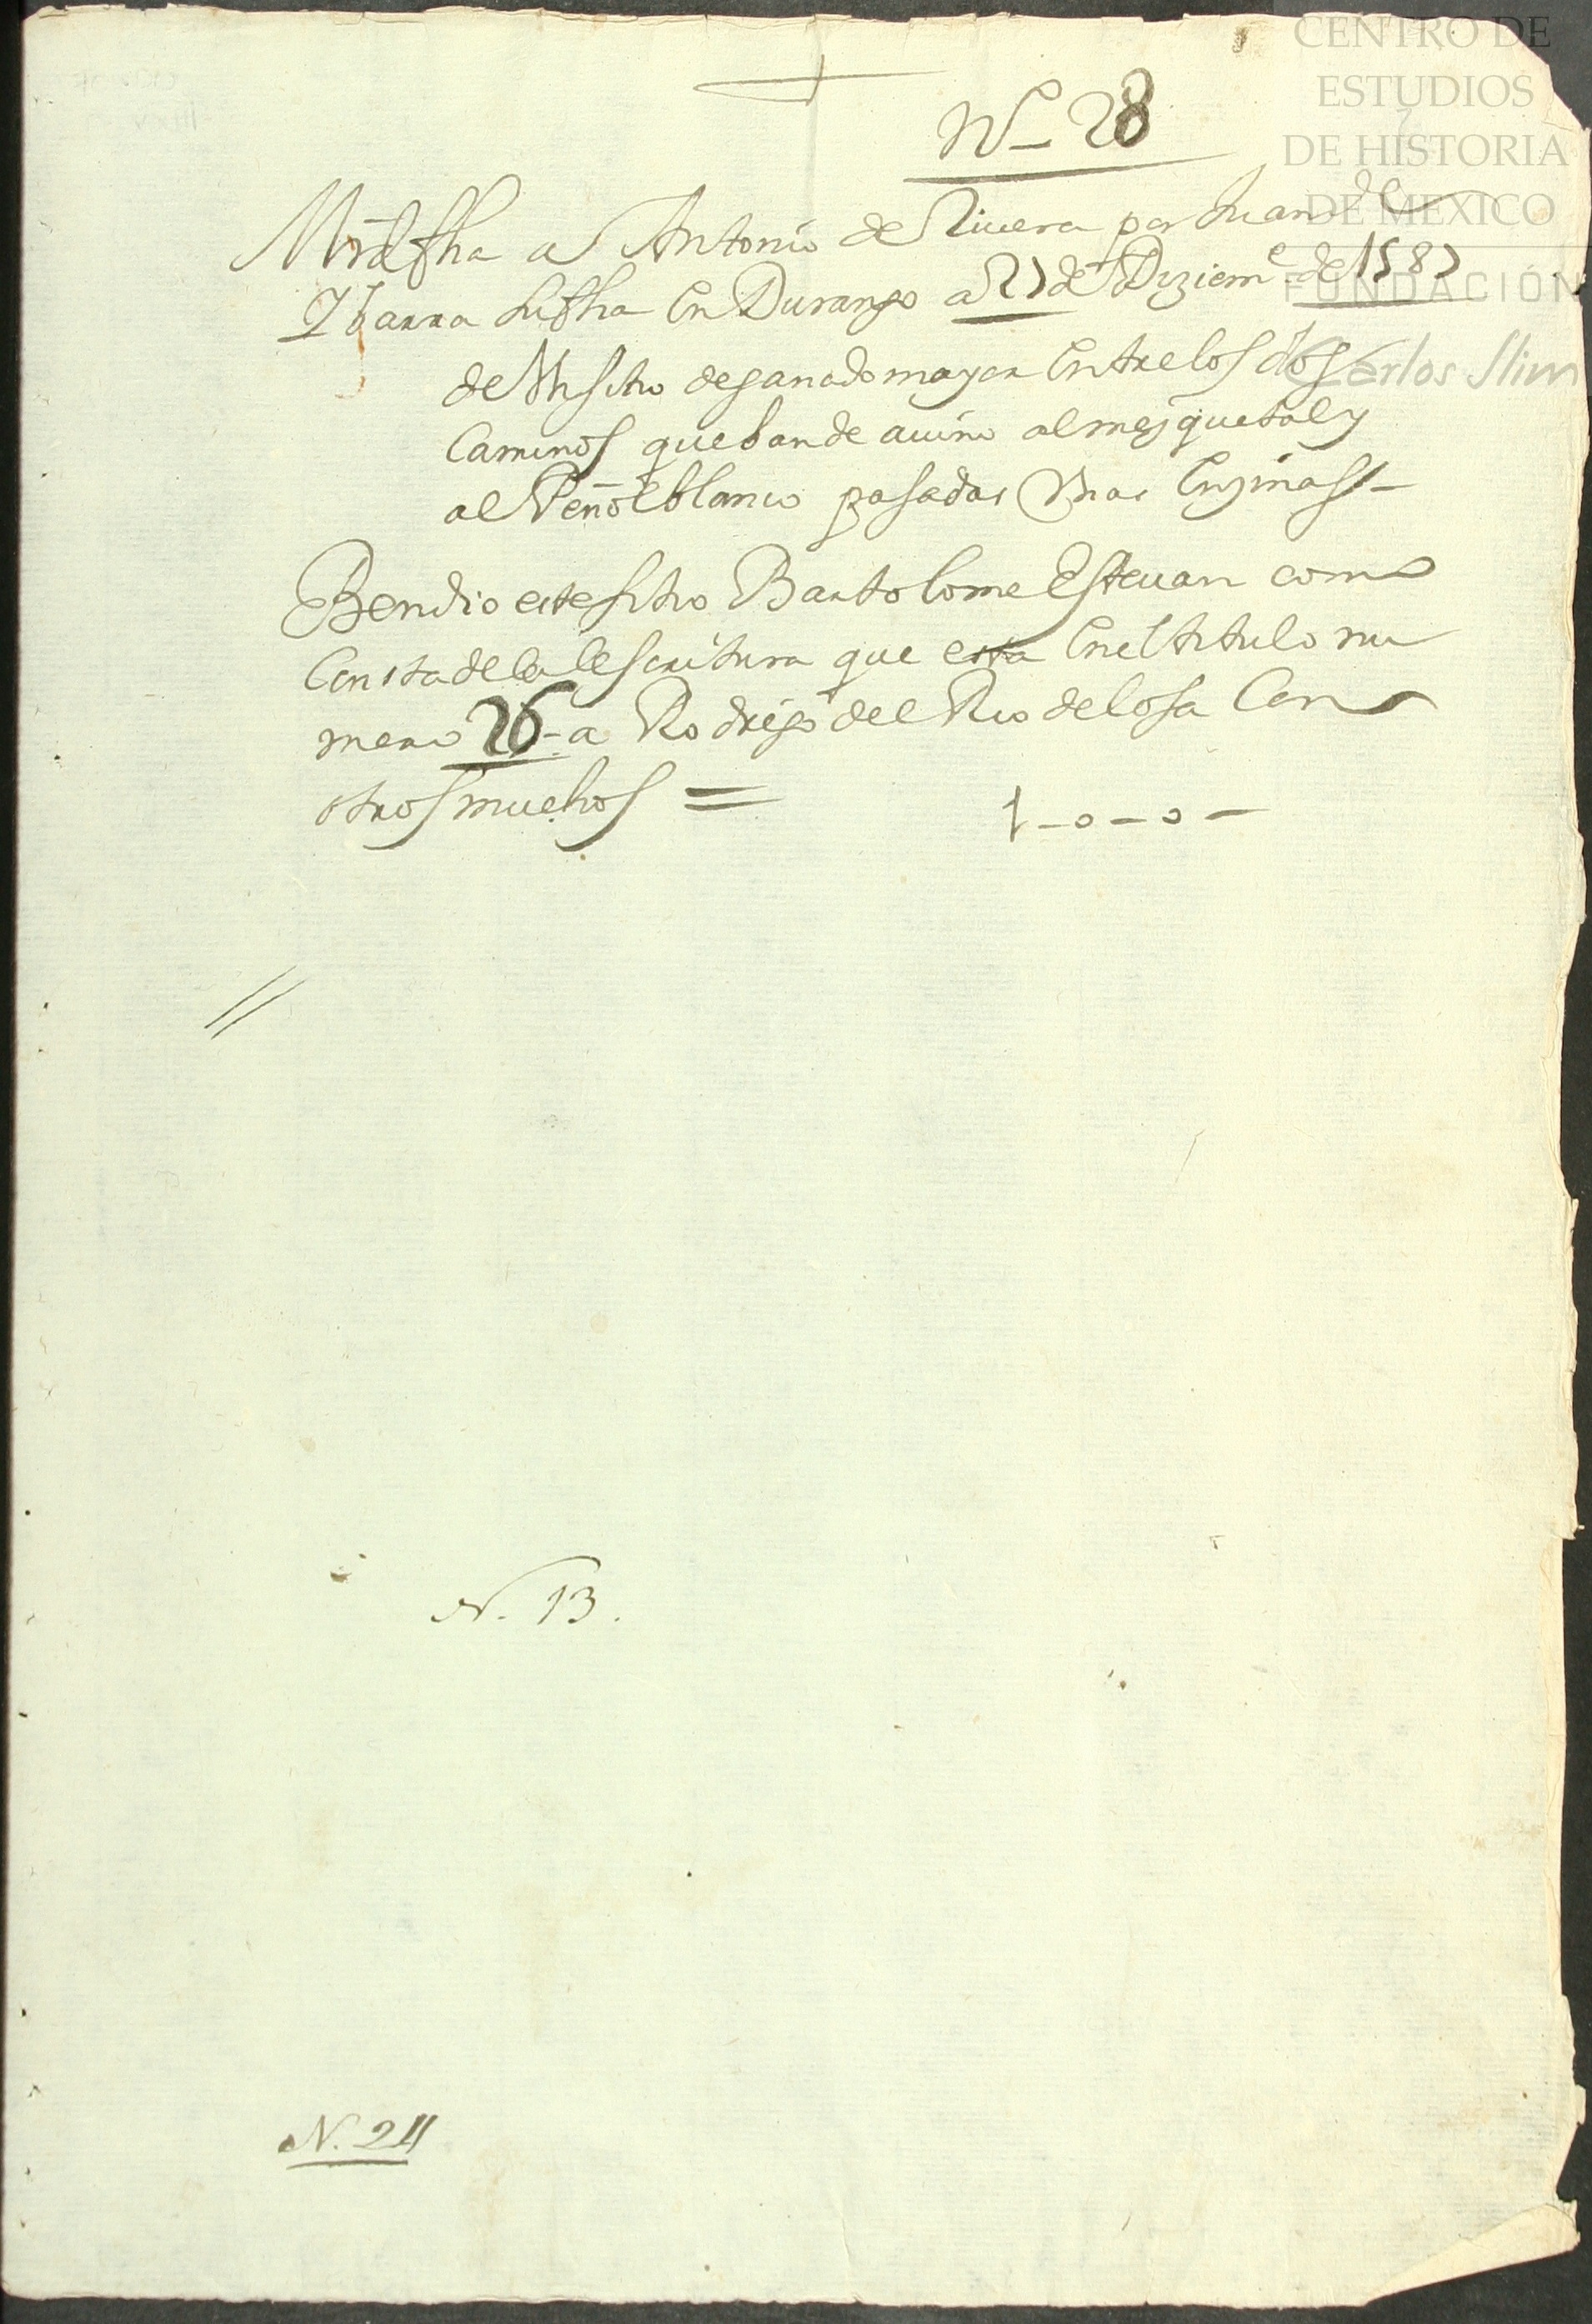 CENTRO DE
ESTUDIOS
DE HISTORIA
DE MEXICO
FUNDACIÓN
Carlos Slim
Nº 28
Mrd fha a Antonio de Riuera por Juan de
Ybarra su fha En Durango a 27 de Diziemᵉ de 1587
de Vn sitio de ganado mayor Entre los dos
Caminos que ban de auino al mesquetal y
al Peñol blanco pasadas Vnas Enzinas
Bendio este sitio Bartolome Esteuan como
Consta de la escritura que esta En el titulo nu
mero 26 a Rodrigo del Rio de losa Con
otros muchos =
1-0-0-
N. 13.
N. 24